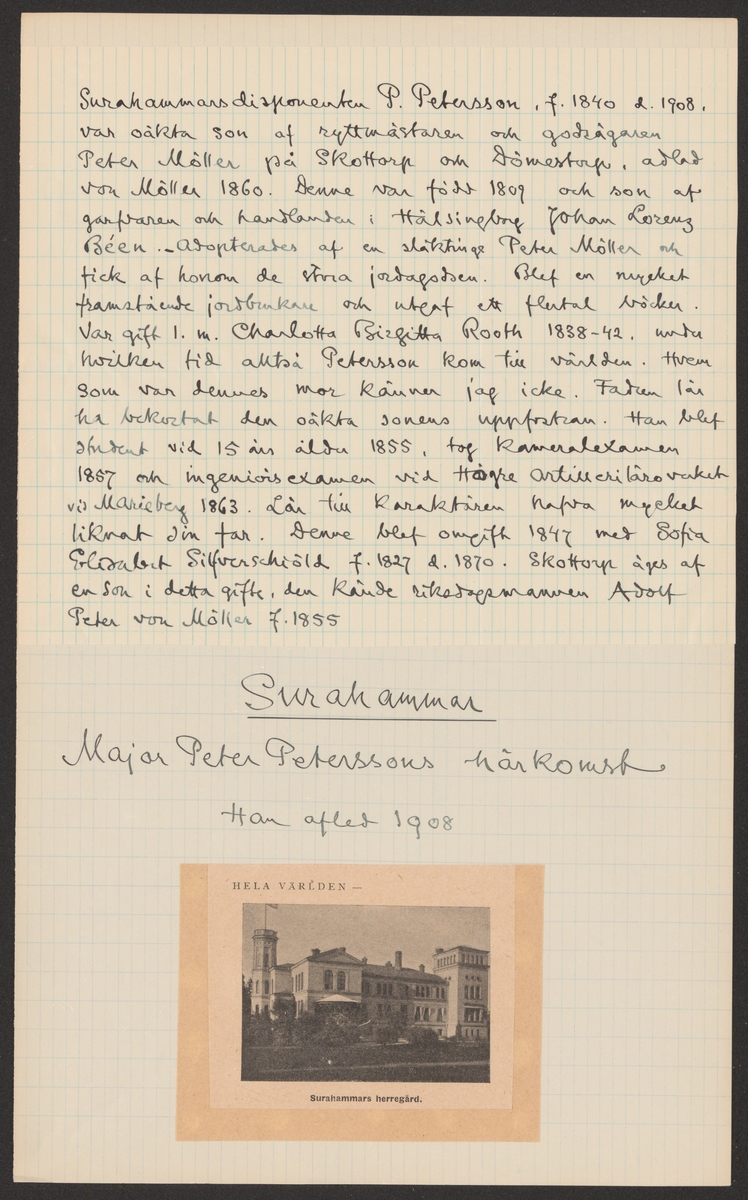 Surahammarsdisponenten P. Petersson, f. 1840 d. 1908,
var oäkta son af ryttmästaren och godsägaren
Peter Möller på Skottorp och Dömestorp, adlad
von Möller 1860. Denne var född 1809 och son af
garfvaren och handlanden i Hälsingborg Johan Lorenz
Béen. – Adopterades af en släktinge Peter Möller och
fick af honom de stora jordagodsen. Blef en mycket
framstående jordbrukare och utgaf ett flertal böcker.
Var gift 1. m. Charlotta Birgitta Rooth 1838-42, under
hvilken tid alltså Petersson kom till världen. Hvem
som var dennes mor känner jag icke. Fadren lär
ha bekostat den oäkta sonens uppfostran. Han blef
student vid 15 års ålder 1855, tog kameralexamen
1857 och ingeniörsexamen vid Högre Artillerilärovärket
vid Marieberg 1863. Lär till karaktären hafva mycket
liknat sin far. Denne blef omgift 1847 med Sofia
Elisabet Silfverschiöld f. 1827 d. 1870. Skottorp äges af
en son i detta gifte, den kände riksdagsmannen Adolf
Peter von Möller f. 1855
Surahammar
Major Peter Peterssons härkomst
Han afled 1908
HELA VÄRLDEN —
Surahammars herregård.